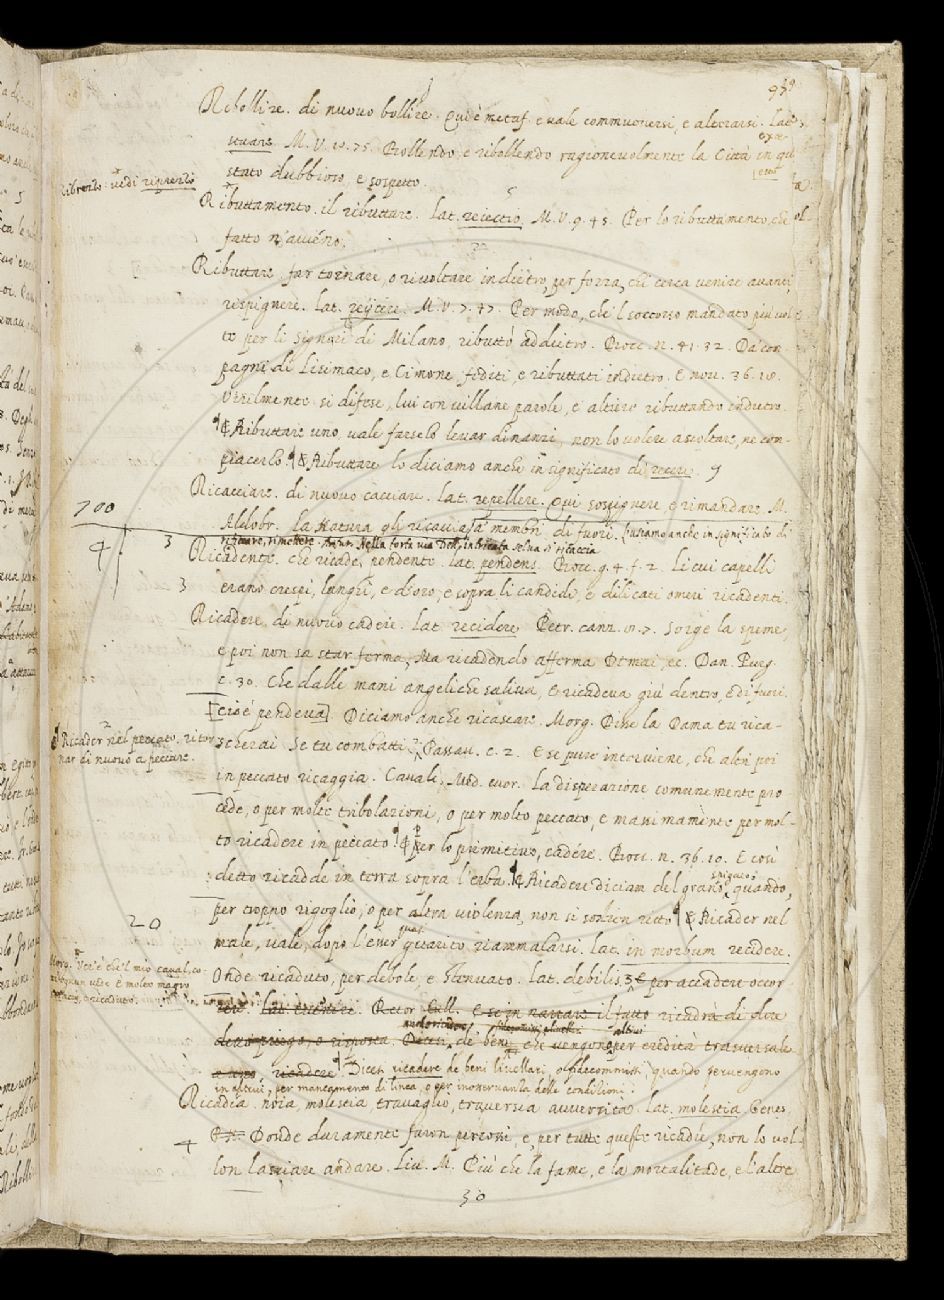 Ribollire. di nuovo bollire. Qui è metaf. e vale commuoversi, e alterarsi. Lat.
exae
stuare. M. V. 10. 75. Bollendo, e ribollendo ragionevolmente la Città in que
sto
stato dubbioso, e sospetto.
Ribrezzo: vedi riprezzo
Ributtamento. il ributtare. Lat. reiectio. M. V. 9. 45. Per lo ributtamento, che
fatto n'aviéno.
Ributtare. far tornare, o rivoltare indietro, per forza, chi cerca venire avanti,
respignere. Lat. reijcere. M. V. 7. 47. Per modo, che 'l soccorso mandato più vol
to per li Signori di Milano, ributtò addietro. Bocc. n. 41. 32. Da' con-
pagni di Lisimaco, e Cimone fediti, e ributtati indietro. E nov. 36. 18.
Virilmente si difese, lui con villane parole, e altiere ributtando indietro.
& Ributtare uno, vale farselo levar dinanzi, non lo volere ascoltare, ne con-
piacerlo. & Ributtare lo diciamo anche in significato di recere.
Ricacciare. di nuovo cacciare. Lat. repellere. Qui sospignere, e rimandare. M.
700
Aldobr. La Natura gli ricaccia a' membri di fuori. Usiamo anche in significato di
ficcare, rimettere. Nella folta via Dell'intricata selva si ricaccia
4
3
Ricadente. che ricade, pendente. Lat. pendens. Bocc. g. 4. f. 2. Li cui capelli
3
erano crespi, lunghi, e d'oro, e sopra li candidi, e dilicati omeri ricadenti.
Ricadere. di nuovo cadere. Lat. recidere Petr. canz. 18. 7. Sorge la speme,
e poi non sa star ferma, Ma ricadendo afferma Di mai, ec. Dan. Purg.
c. 30. Che dalle mani angeliche saliva, E ricadeva giù dentro, e di fuori.
[cioè pendeva]. Diciamo anche ricascare. Morg. Disse la Dama tu rica-
Ricader nel peccato. ritor
nar di nuovo a peccare.
scherai Se tu combatti. Passav. c. 2. E se pure interviene, che altri poi
in peccato ricaggia. Cavalc. Med. cuor. La disperazione comunemente pro-
cede, o per molte tribolazioni, o per molto peccato, e massimamente per mol-
to ricadere in peccato. & per lo primitivo, cadere. Bocc. n. 36. 10. E così
detto ricadde in terra sopra l'erba. & Ricadere diciam del grano spigato, quando,
per troppo rigoglio, o per altra violenza, non si sostien ritto & Ricader nel
20
male, vale, dopo l'esser quasi guarito riammalarsi. Lat. in morbum recidere.
Onde ricaduto, per debole, e stenuato. Lat. debilis. & per accadere occor-
rere. Lat. evenire. Retor Tull. E se in narrare il fatto ricadrà di dire
di beni che vengono per eredità trasversale
ricadere. Dicesi ricadere de beni livellari, o fidecommissi, quando pervengono
in altrui, per mancamento di linea, o per inosservanza delle condizioni.
Ricadía. noia, molestia, travaglio, traversia, avversità. Lat. molestia. Genes.
4
Donde duramente furon percossi, e, per tutte queste ricadíe, non lo vol
lon lasciare andare. Liv. M. Più che la fame, e la mortalitade, e l'altre
30